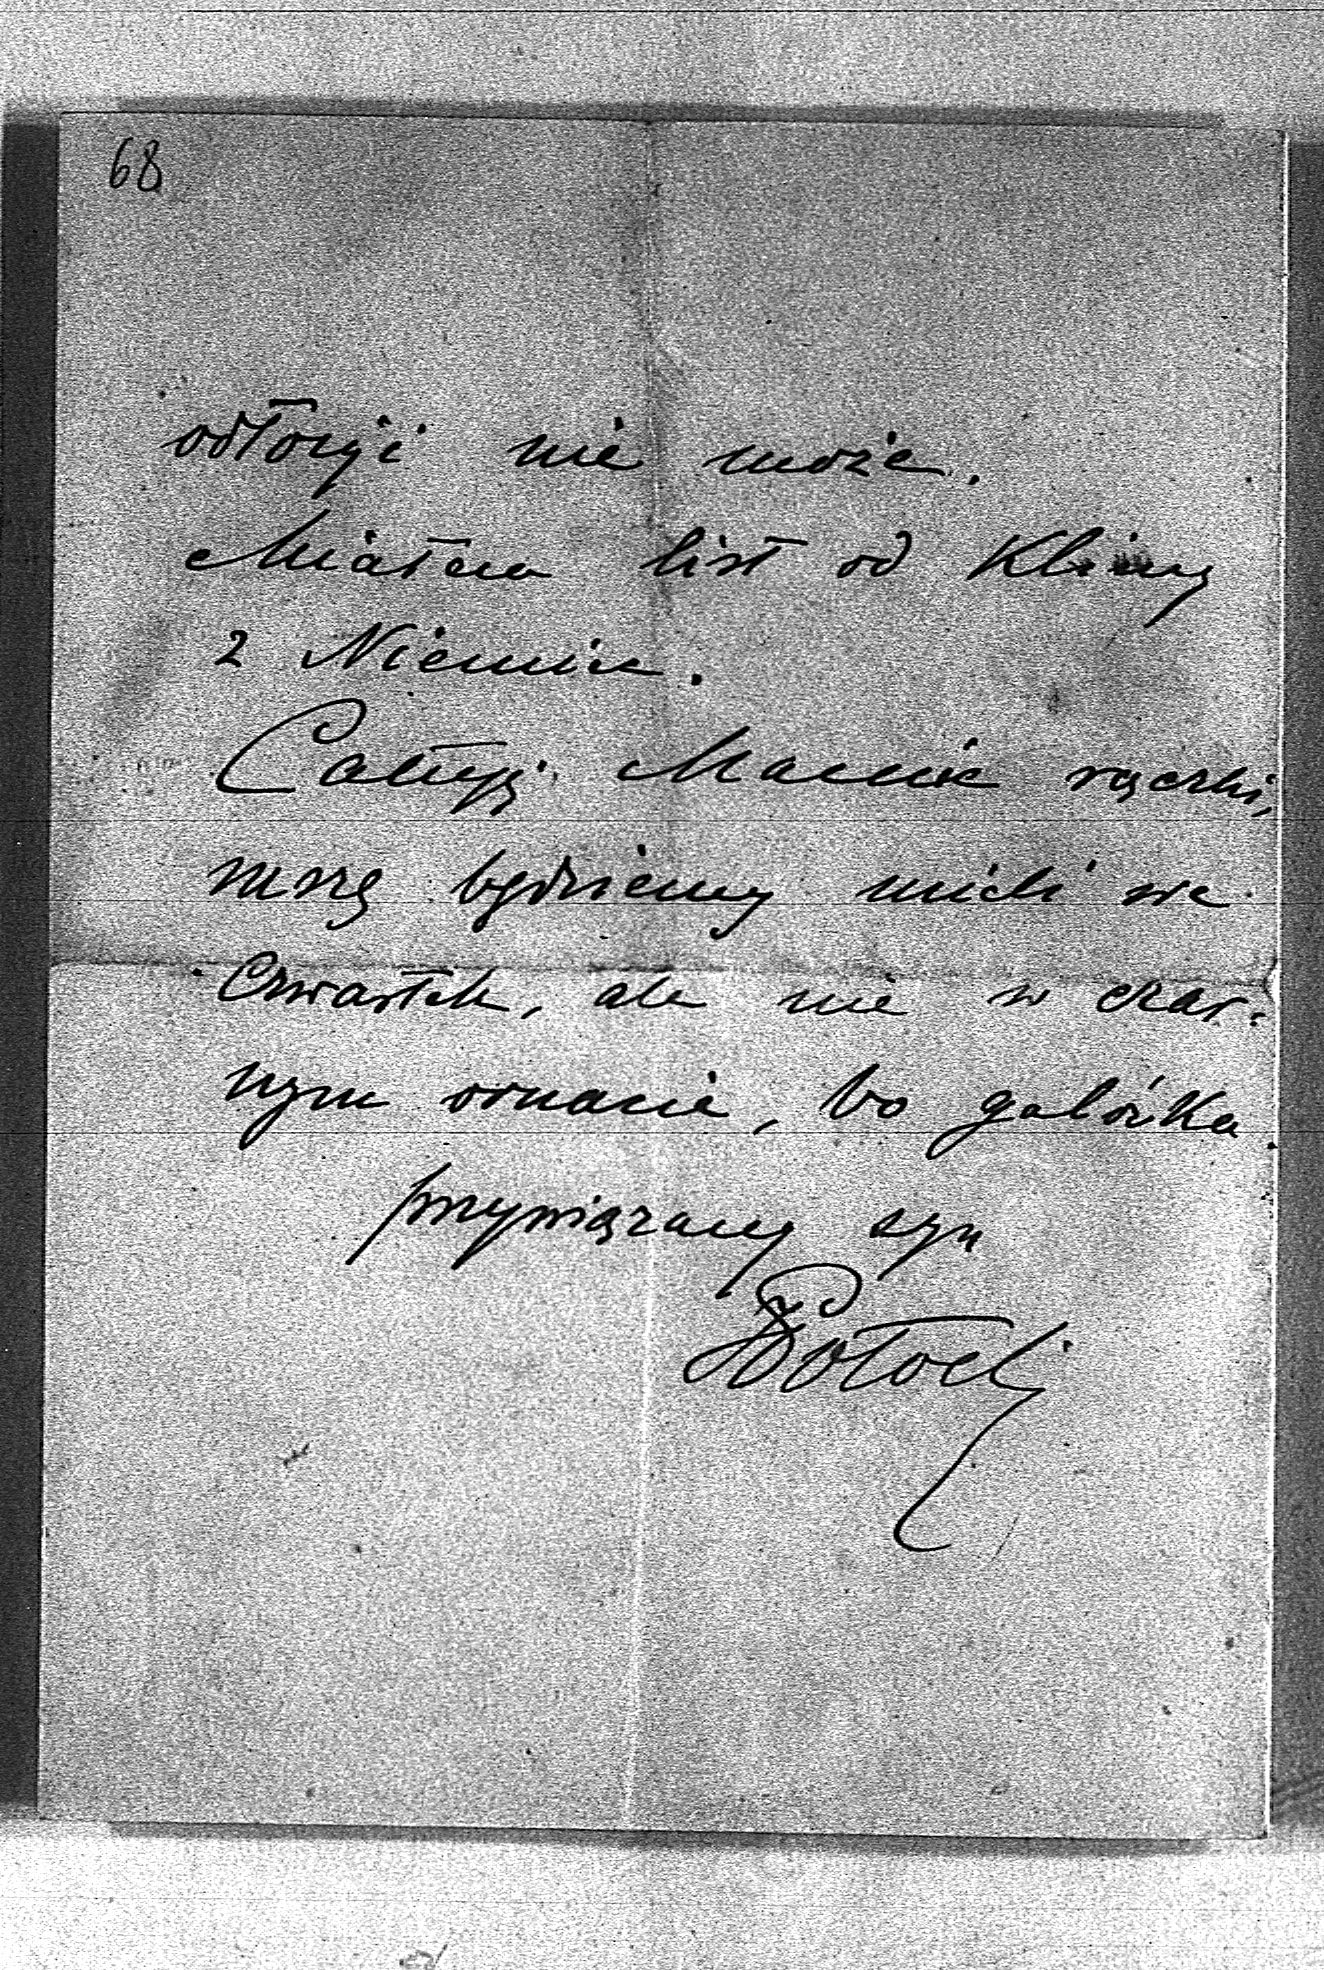 68
odłożyć nie może.
Miałem list od Klimy
z Niemiec.
Całuję Mamie rączki,
mszę będziemy mieli we
Czwartek, ale nie w czar-
nym ornacie, bo galówka.
przywiązany syn